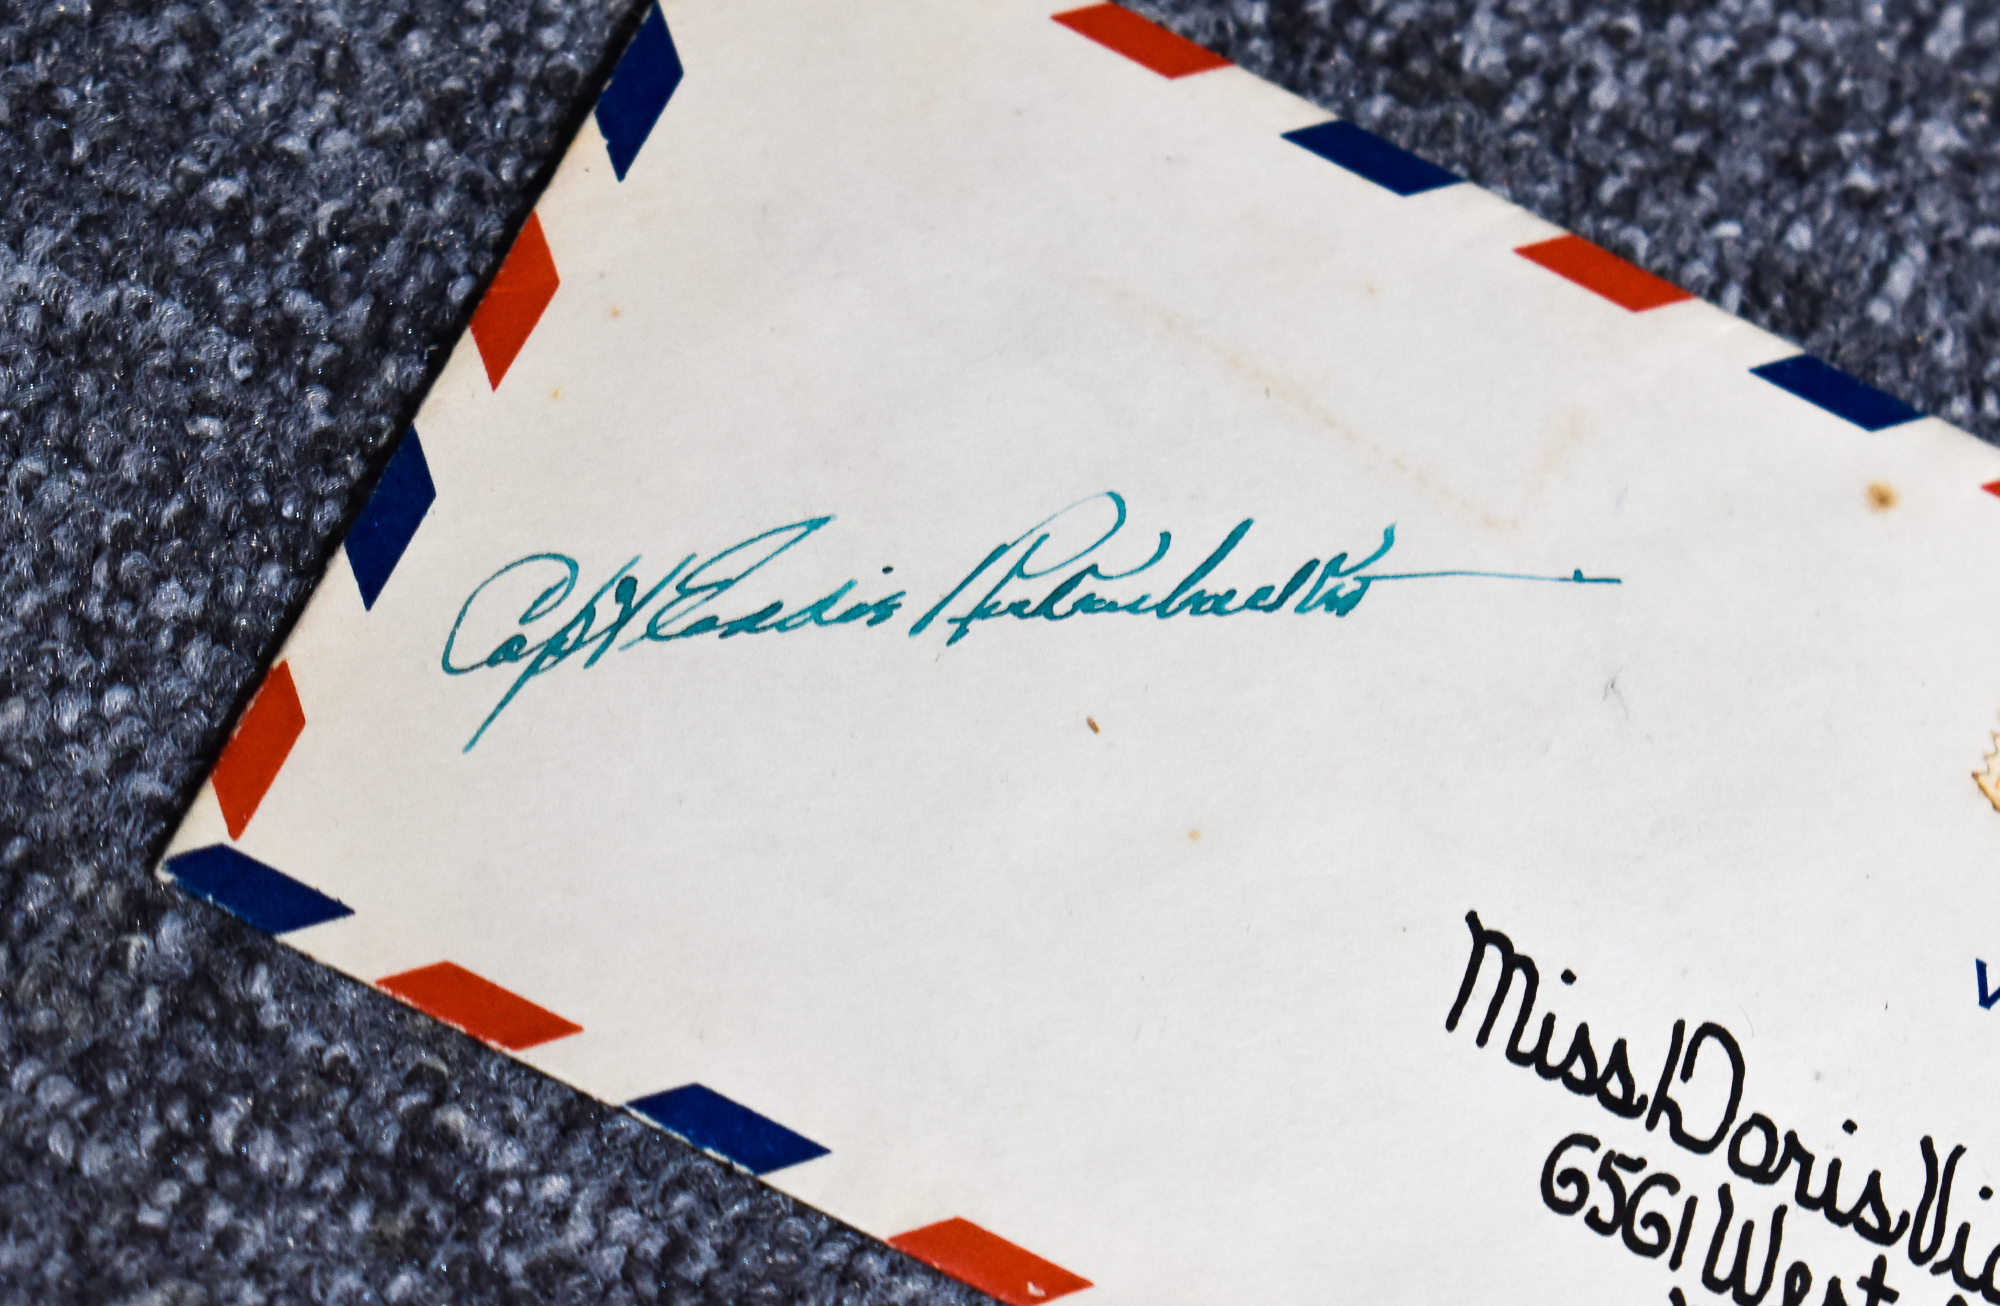 Capt Eddie Rickenbacker
Miss Doris Vic
6561 West